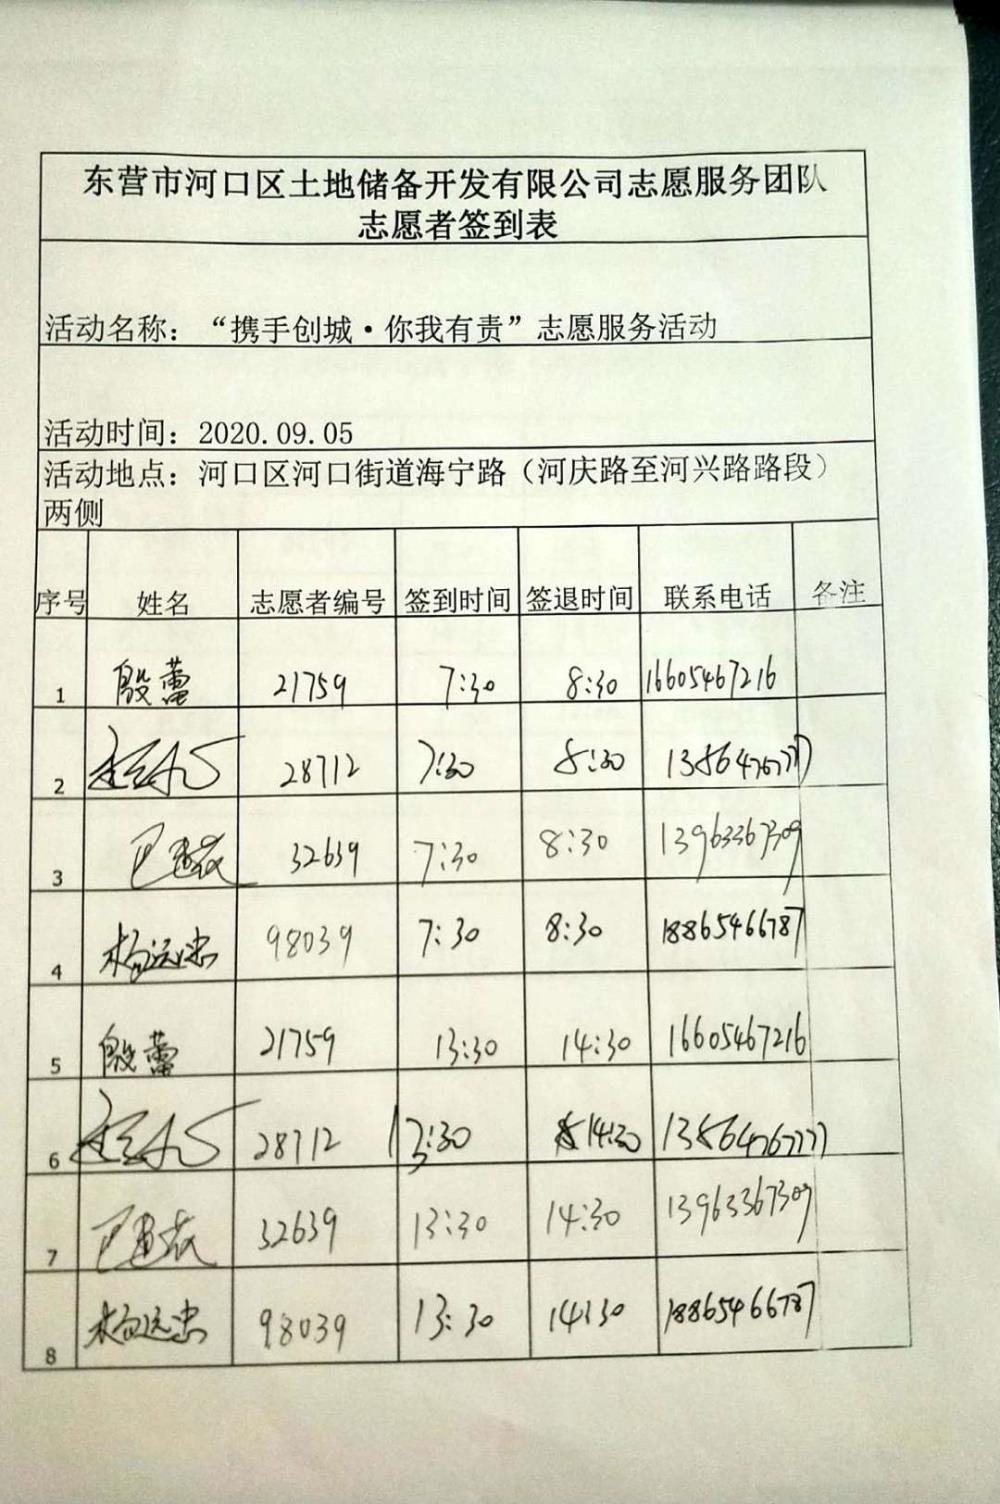 东营市河口区土地储备开发有限公司志愿服务团队
志愿者签到表
活动名称：“携手创城·你我有责”志愿服务活动
活动时间：2020.09.05
活动地点：河口区河口街道海宁路（河庆路至河兴路路段）
两侧
序号 姓名 志愿者编号 签到时间 签退时间 联系电话 备注
1 殷蕾 21759 7:30 8:30 16605467216
2 28712 7:30 8:30
3 32639 7:30 8:30 13963367309
4 杨远忠 98039 7:30 8:30 18865466787
5 殷蕾 21759 13:30 14:30 16605467216
6 28712 13:30 14:30 13864767777
7 32639 13:30 14:30 13963367309
8 杨远忠 98039 13:30 14:30 18865466787